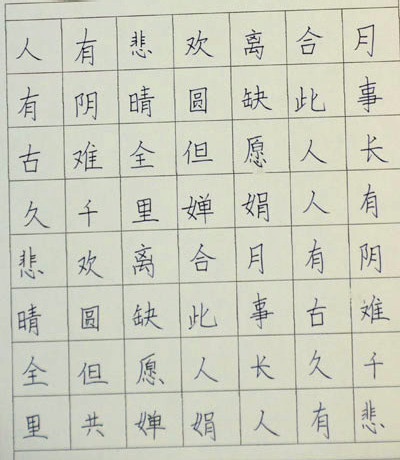 人有悲欢离合月
有阴晴圆缺此事
古难全但愿人长
久千里婵娟人有
悲欢离合月有阴
晴圆缺此事古难
全但愿人长久千
里共婵娟人有悲